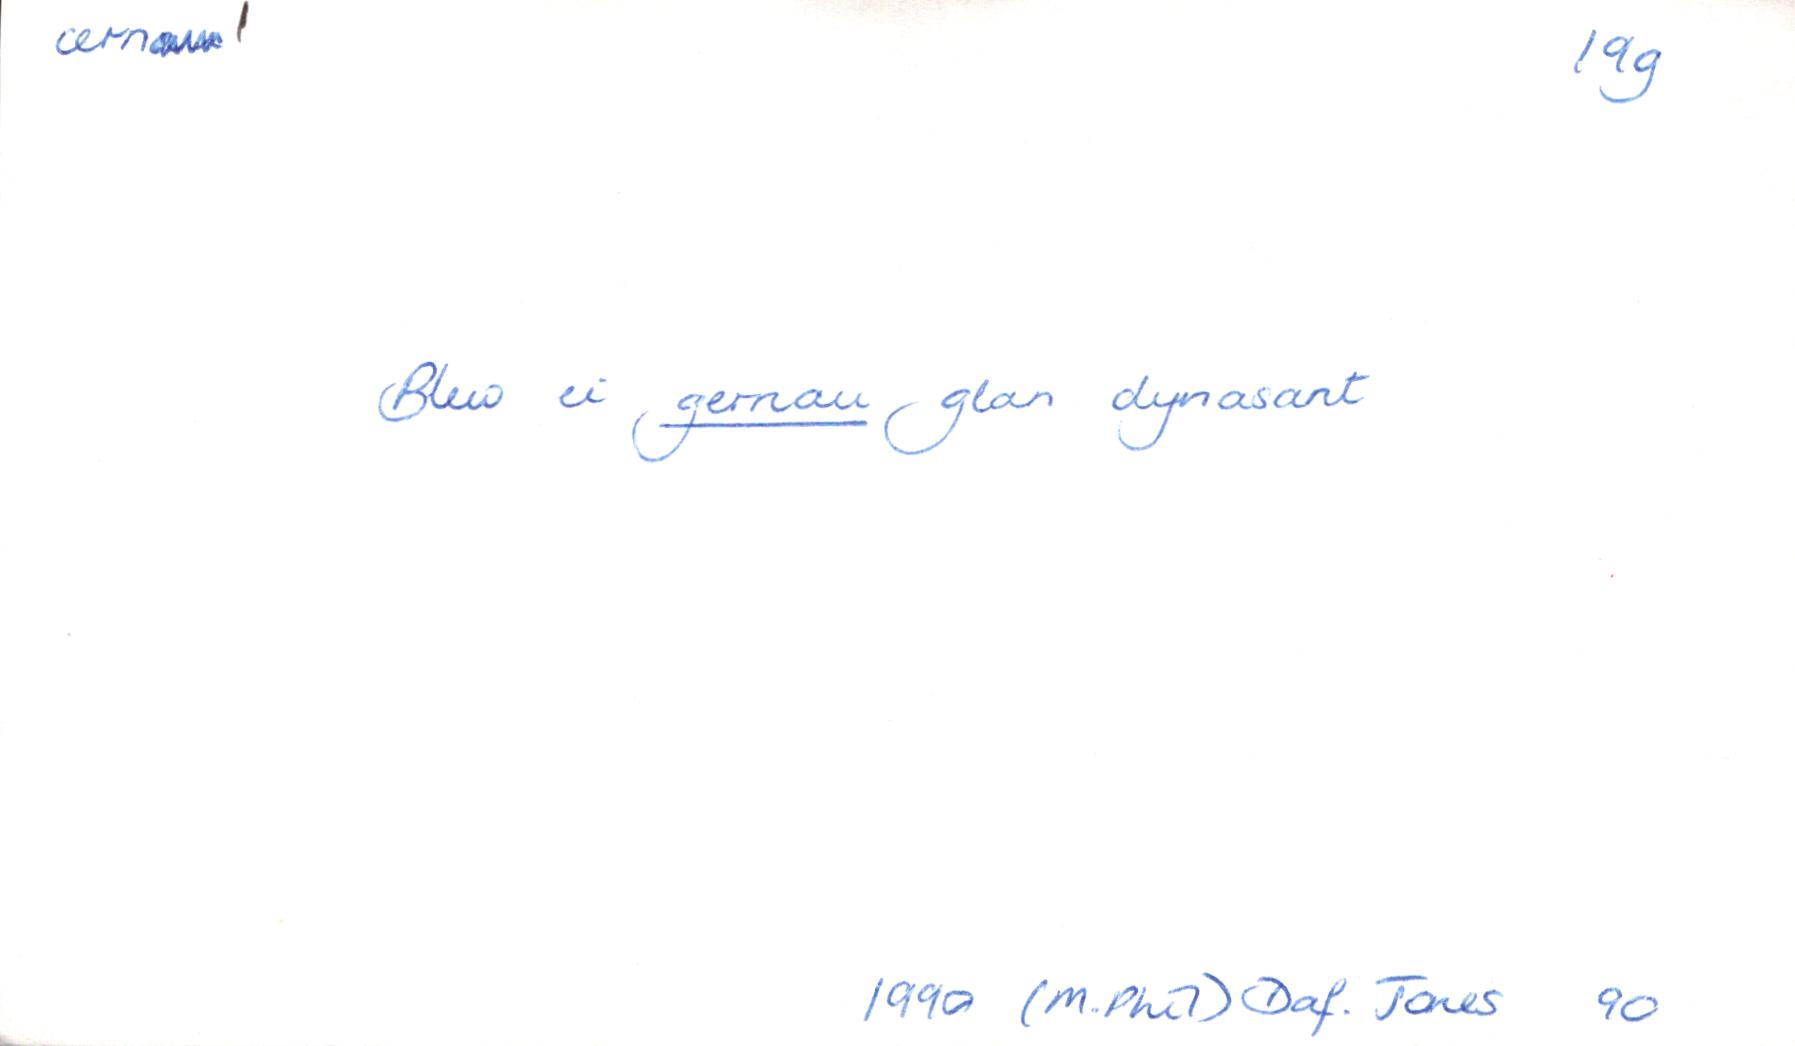 cern
19g
Blew ei gernau glan dynasant
1990 (M.Phil) Daf. Jones 90